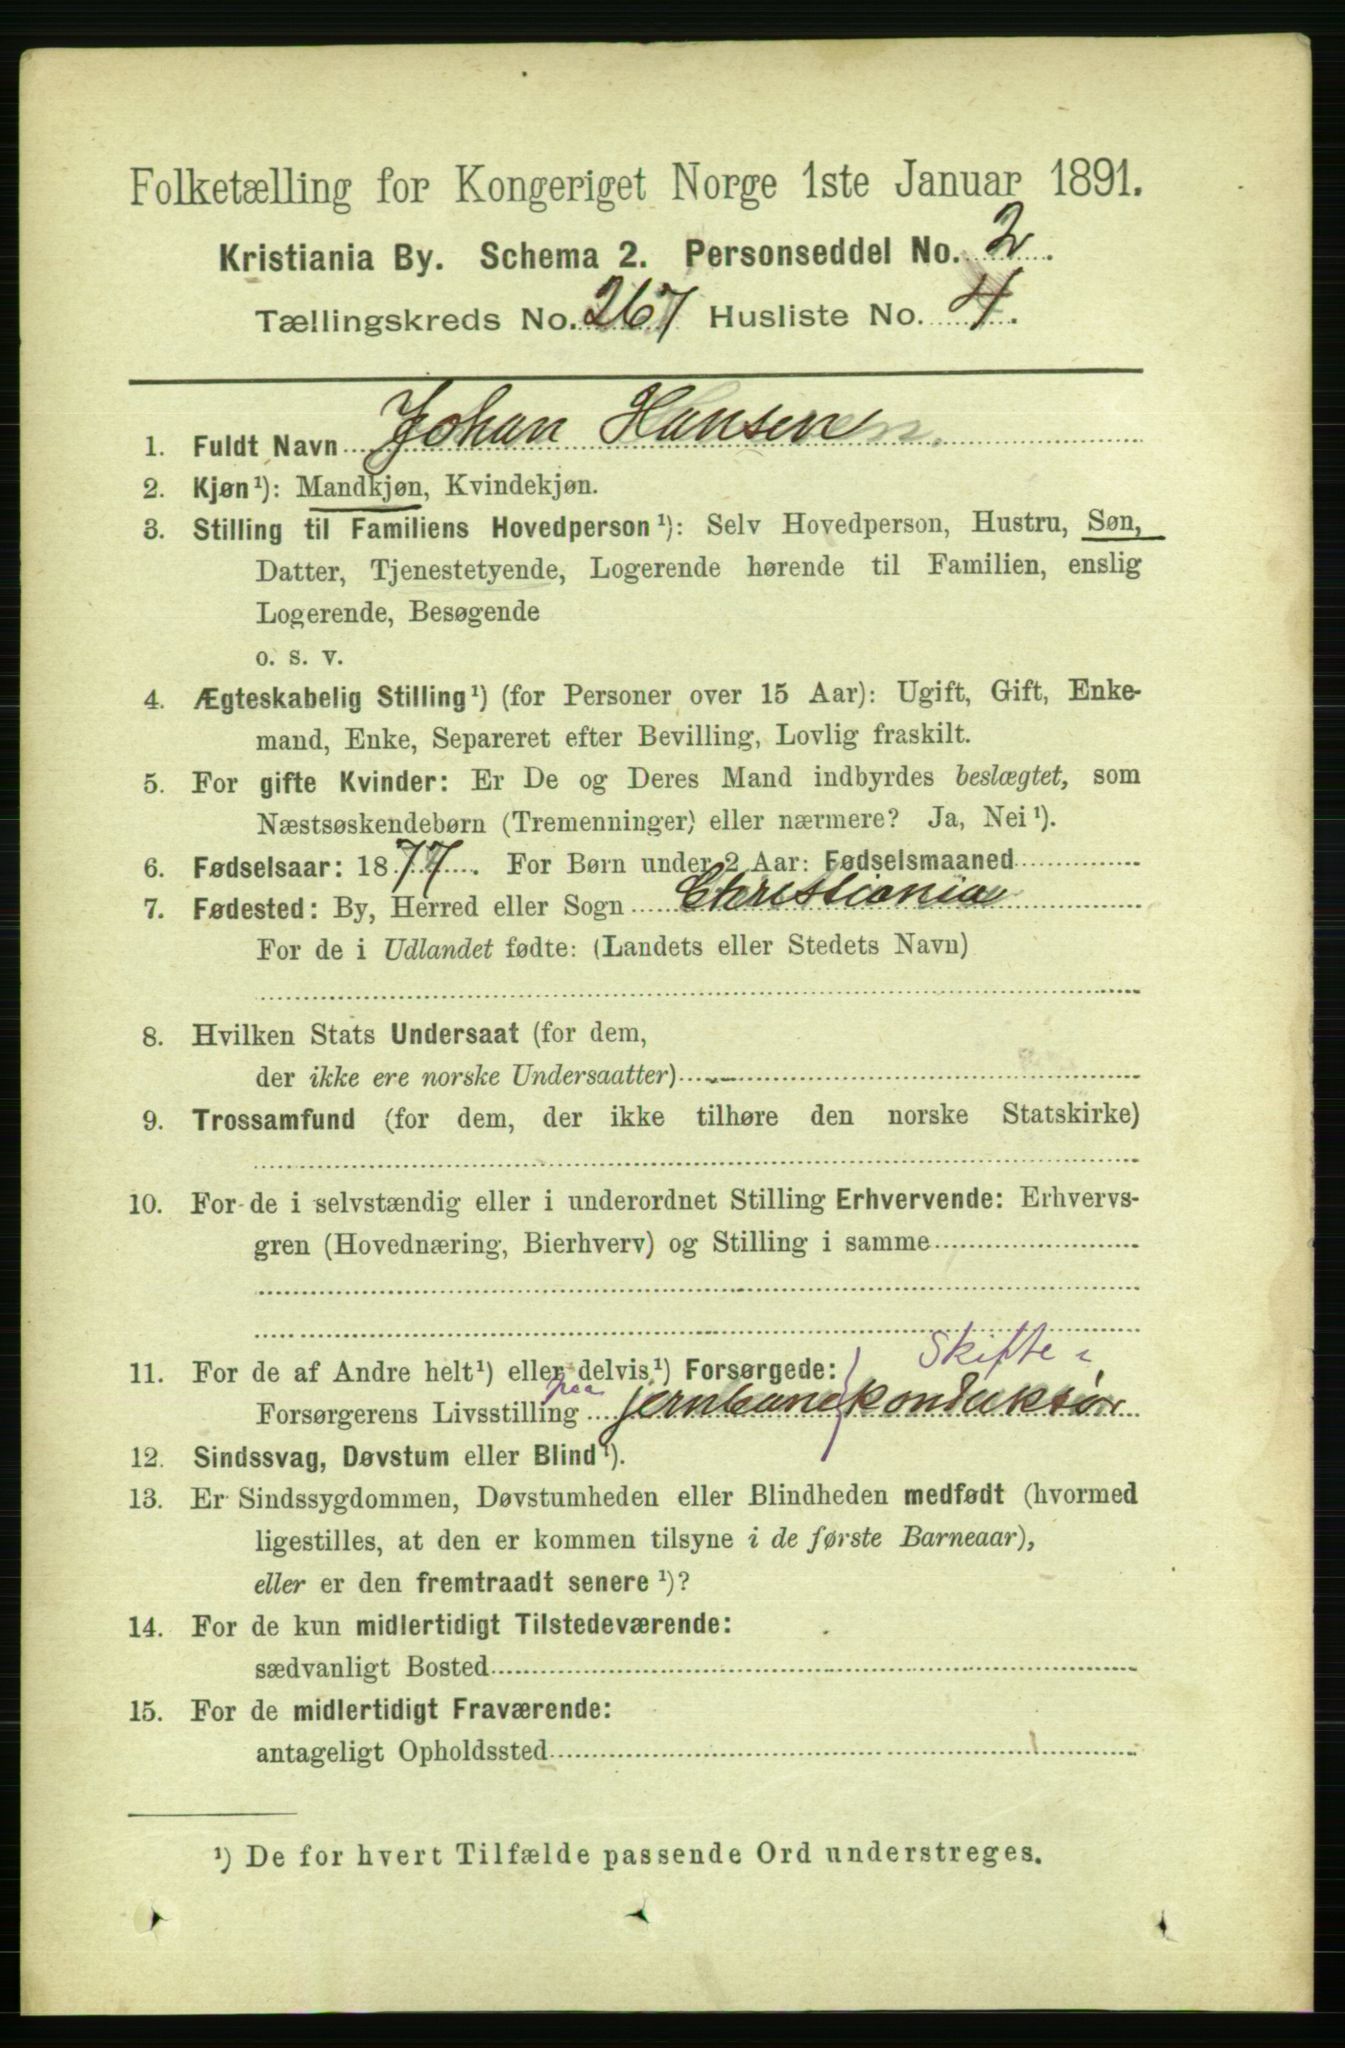 Folketælling for Kongeriget Norge 1ste Januar 1891.
Kristiania By. Schema 2. Personseddel No. 2.
Tællingskreds No. 267 Husliste No. 4.
1. Fuldt Navn Johan Hansen
2. Kjøn¹): Mandkjøn, Kvindekjøn.
3. Stilling til Familiens Hovedperson¹): Selv Hovedperson, Hustru, Søn,
Datter, Tjenestetyende, Logerende hørende til Familien, enslig
Logerende, Besøgende
o. s. v.
4. Ægteskabelig Stilling¹) (for Personer over 15 Aar): Ugift, Gift, Enke-
mand, Enke, Separeret efter Bevilling, Lovlig fraskilt.
5. For gifte Kvinder: Er De og Deres Mand indbyrdes beslægtet, som
Næstsøskendebørn (Tremenninger) eller nærmere? Ja, Nei¹).
6. Fødselsaar: 1877. For Børn under 2 Aar: Fødselsmaaned
7. Fødested: By, Herred eller Sogn Christiania
For de i Udlandet fødte: (Landets eller Stedets Navn)
8. Hvilken Stats Undersaat (for dem,
der ikke ere norske Undersaatter)
9. Trossamfund (for dem, der ikke tilhøre den norske Statskirke)
10. For de i selvstændig eller i underordnet Stilling Erhvervende: Erhvervs-
gren (Hovednæring, Bierhverv) og Stilling i samme
Skifte
11. For de af Andre helt¹) eller delvis¹) Forsørgede:
paa
Forsørgerens Livsstilling jernbanekonduktør
12. Sindssvag, Døvstum eller Blind¹).
13. Er Sindssygdommen, Døvstumheden eller Blindheden medfødt (hvormed
ligestilles, at den er kommen tilsyne i de første Barneaar),
eller er den fremtraadt senere¹)?
14. For de kun midlertidigt Tilstedeværende:
sædvanligt Bosted
15. For de midlertidigt Fraværende:
antageligt Opholdssted
¹) De for hvert Tilfælde passende Ord understreges.